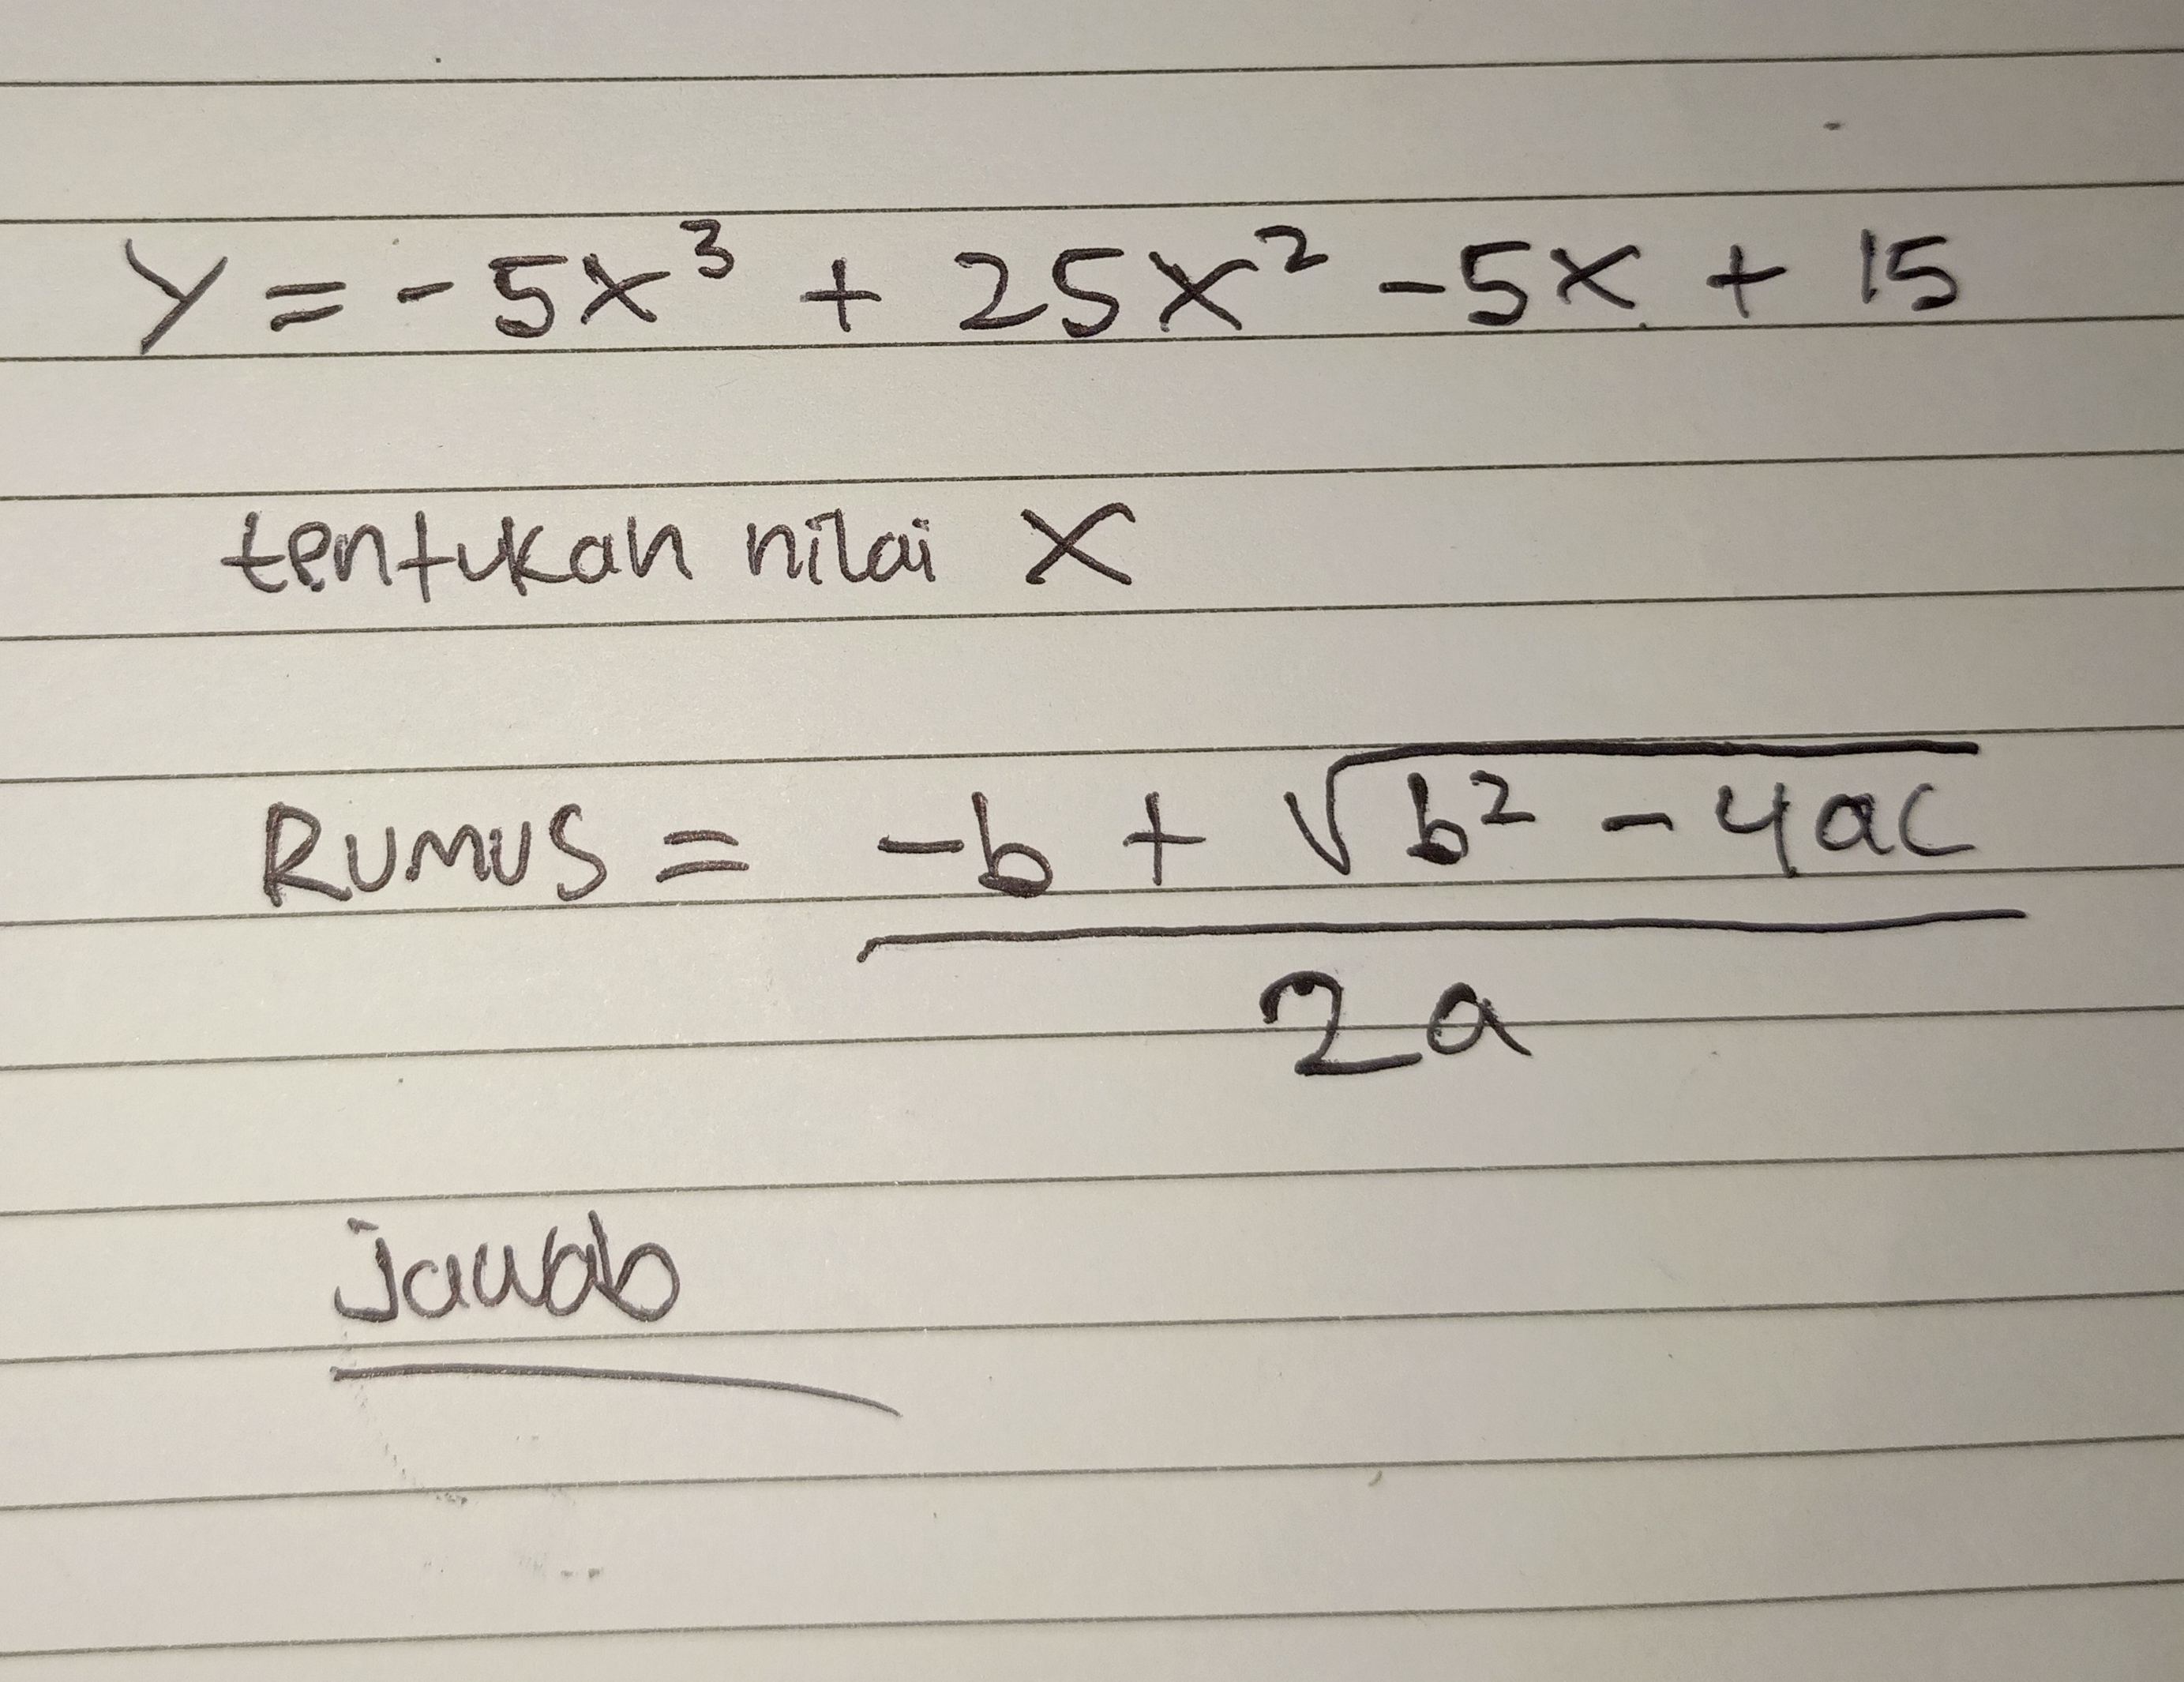 y = -5x³ + 25x² -5x + 15
tentukan nilai x
Rumus = -b + √b² - 4ac
2a
jawab